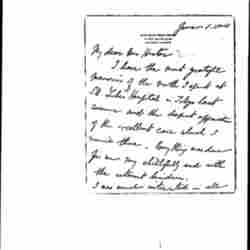 My dear Mrs
I have the most grateful
memories of the month I spent at
St. Luke's Hospital in Tokyo last
summer and the deepest appreciation
of the excellent care which I
received there. Everything was done
for me very skillfully and with
the utmost kindness.
I am much interested in all